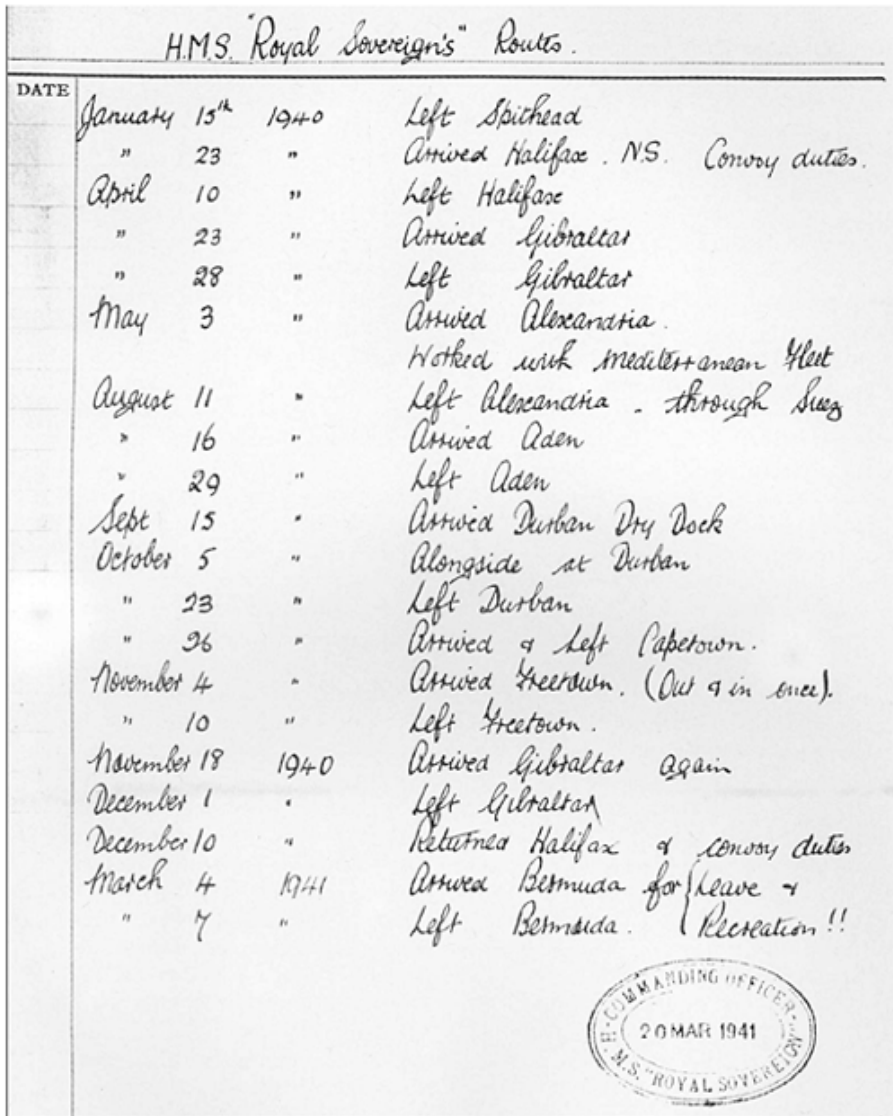 H.M.S. "Royal Sovereign's" Routes.
DATE
January 15th 1940 Left Spithead
" 23 " Arrived Halifax. N.S. Convoy duties.
April 10 " Left Halifax
" 23 " Arrived Gibraltar
" 28 " Left Gibraltar
May 3 " Arrived Alexandria.
Worked with Mediterranean Fleet
August 11 " Left Alexandria - through Suez
" 16 " Arrived Aden
" 29 " Left Aden
Sept 15 " Arrived Durban Dry Dock
October 5 " Alongside at Durban
" 23 " Left Durban
" 26 " Arrived & Left Capetown.
November 4 " Arrived Freetown. (Out & in once).
" 10 " Left Freetown.
November 18 1940 Arrived Gibraltar again
December 1 " Left Gibraltar
December 10 " Returned Halifax & convoy duties
March 4 1941 Arrived Bermuda for { Leave &
" 7 " Left Bermuda. { Recreation!!
COMMANDING OFFICER
20 MAR 1941
H.M.S. "ROYAL SOVEREIGN"